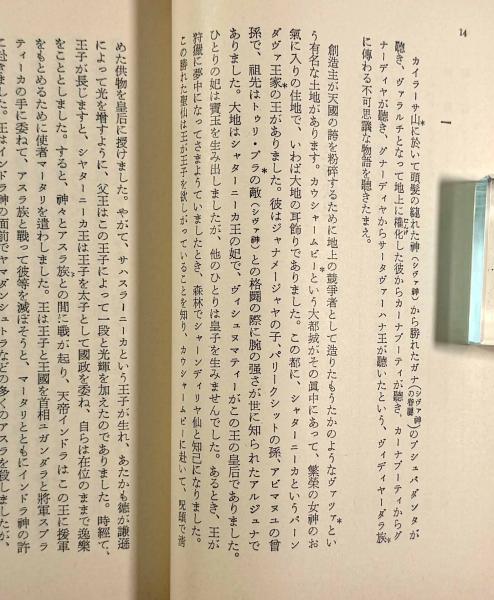 14
一
カイラーサ山*に於いて頭髪の縺れた神(シヴァ神)から勝れたガナ(シヴァ神の眷属)のプシュパダンタが
聴き、ヴァラルチとなって地上に権化した彼からカーナブーティが聴き、カーナブーティからグ
ナーディヤが聴き、グナーディヤからサータヴァーハナ王が聴いたという、ヴィディヤーダラ族*
に傳わる不可思議な物語を聴きたまえ。
創造主が天國の誇を粉碎するために地上の競爭者として造りたもうたかのようなヴァツァ*とい
う有名な土地があります。カウシャームビー*という大都城がその眞中にあって、繁榮の女神のお
氣に入りの住地で、いわば大地の耳飾りでありました。この都に、シャターニーカというパーン
ダヴァ王家*の王がありました。彼はジャナメージャヤの子、パリークシットの孫、アビマヌユの曾
孫で、祖先はトゥリ・プラの敵*(シヴァ神)との格闘の際に腕の强さが世に知られたアルジュナで
ありました。大地はシャターニーカ王の妃で、ヴィシュヌマティーがこの王の皇后でありました。
ひとりの妃は寶玉を生み出しましたが、他のひとりは皇子を生みませんでした。あるとき、王が
狩獵に夢中になってさまようていましたとき、森林でシャーンディリヤ仙と知己になりました。
この勝れた聖仙は王が王子を欲しがっていることを知り、カウシャームビーに赴いて、呪頌で淸
めた供物を皇后に授けました。やがて、サハスラーニーカという王子が生れ、あたかも德が謙遜
によって光を增すように、父王はこの王子によって一段と光輝を加えたのでありました。時經て、
王子が長じますと、シャターニーカ王は王子を太子として國政を委ね、自らは在位のままで逸樂
をこととしました。すると、神々とアスラ族*との間に戰が起り、天帝インドラはこの王に援軍
をもとめるために使者マータリを遣わしました。王は王子と王國を首相ユガンダラと將軍スプラ
ティーカの手に委ねて、アスラ族と戰って彼等を滅ぼそうと、マータリとともにインドラ神の許
に赴きました。王はインドラ神の面前でヤマダンシュトラなどの多くのアスラを殺しましたが、